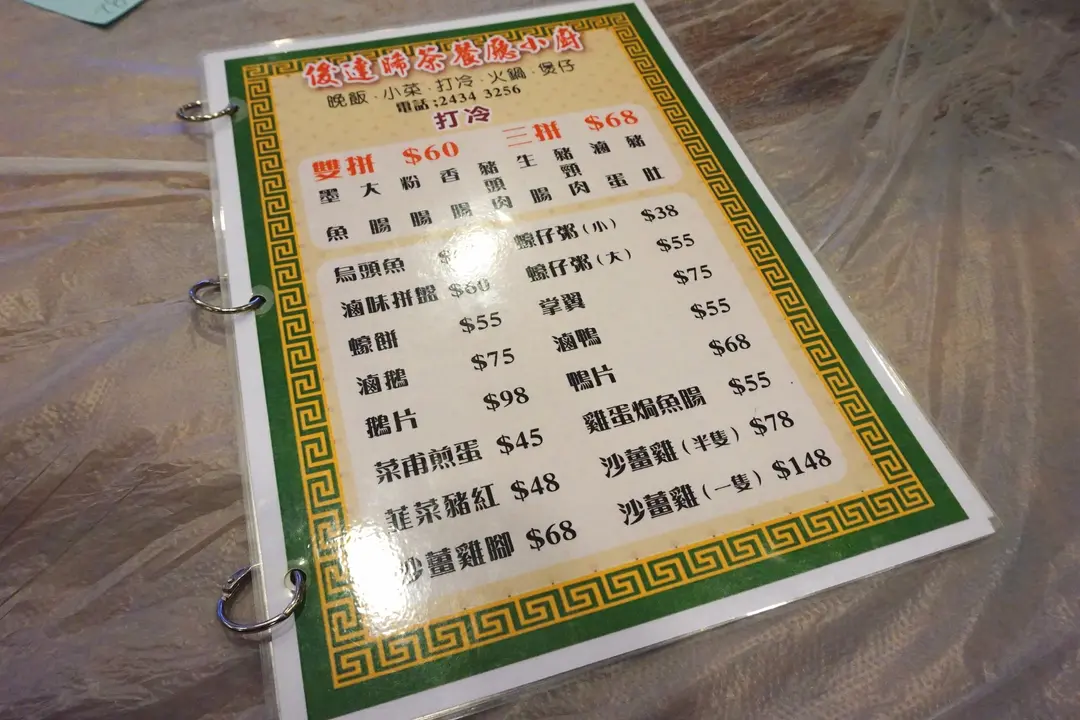 俊達茶餐廳小廚
晚飯·小菜·打冷·火鍋·煲仔
電話:2434 3256
打冷
雙拼 $60 三拼 $68
墨魚 大腸 粉腸 香腸 豬頭肉 生腸 豬頸肉 滷蛋 豬肚
烏頭魚 蠔仔粥(小) $38
滷味拼盤 $60 蠔仔粥(大) $55
蠔餅 $55 掌翼 $75
滷鵝 $75 滷鴨 $55
鵝片 $98 鴨片 $68
菜甫煎蛋 $45 雞蛋焗魚腸 $55
韮菜豬紅 $48 沙薑雞(半隻) $78
沙薑雞腳 $68 沙薑雞(一隻) $148